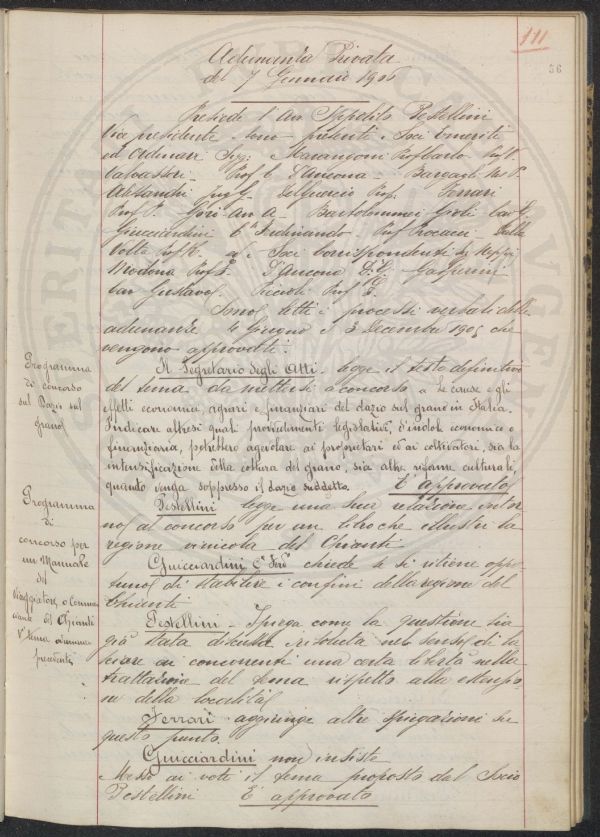 111
56
Adunanza Privata
del 7 Gennaio 1906
Presiede l'Avv. Ippolito Pestellini
Vice presidente. Sono presenti i Soci Emeriti
ed Ordinari Sigg: Marangoni Prof Carlo
Valvassori Prof. C. D'Ancona - Bargagli
Alessandri Ing G. Del Guercio Prof. Ferrari
Prof. P. Gori Avv A. Bartolommei Gioli
Guicciardini Cte Ferdinando. Prof. Pocacci Della
Volta Prof. R. e i Soci Corrispondenti
Modona Prof. L. D'Ancona Dr. G. Gasperini
Cav Gustavo. Piccioli Prof L.
Sono letti i processi verbali delle
adunanze 4 Giugno e 3 Decembre 1905 che
vengono approvati.
Il Segretario degli Atti - legge il testo definitivo
del tema da mettersi a concorso "Le cause e gli
effetti economici, agrari e finanziari del dazio sul grano in Italia.
Indicare altresì quali provvedimenti legislativi, d'indole economico e
finanziaria, potrebbero agevolare ai proprietari ed ai coltivatori, sia la
intensificazione della coltura del grano, sia altre riforme culturali,
quando venga soppresso il dazio suddetto. È approvato
Pestellini legge una sua relazione intor
no al concorso per un libro che illustri la
regione vinicola del Chianti.
Guicciardini Cte Ferdo chiede se si ritiene oppor
tuno di stabilire i confini della regione del
Chianti.
Pestellini - Spiega come la questione sia
già stata discussa e risoluta nel senso di la
sciare ai concorrenti una certa libertà nella
trattazione del tema rispetto alla estensio
ne della località
Ferrari - aggiunge altre spiegazioni su
questo punto.
Guicciardini non insiste
Messo ai voti il tema proposto dal Socio
Pestellini È approvato
Programma
di concorso
sul Dazio sul
grano
Programma
di
concorso per
un Manuale
del
Viaggiatore
del Chianti